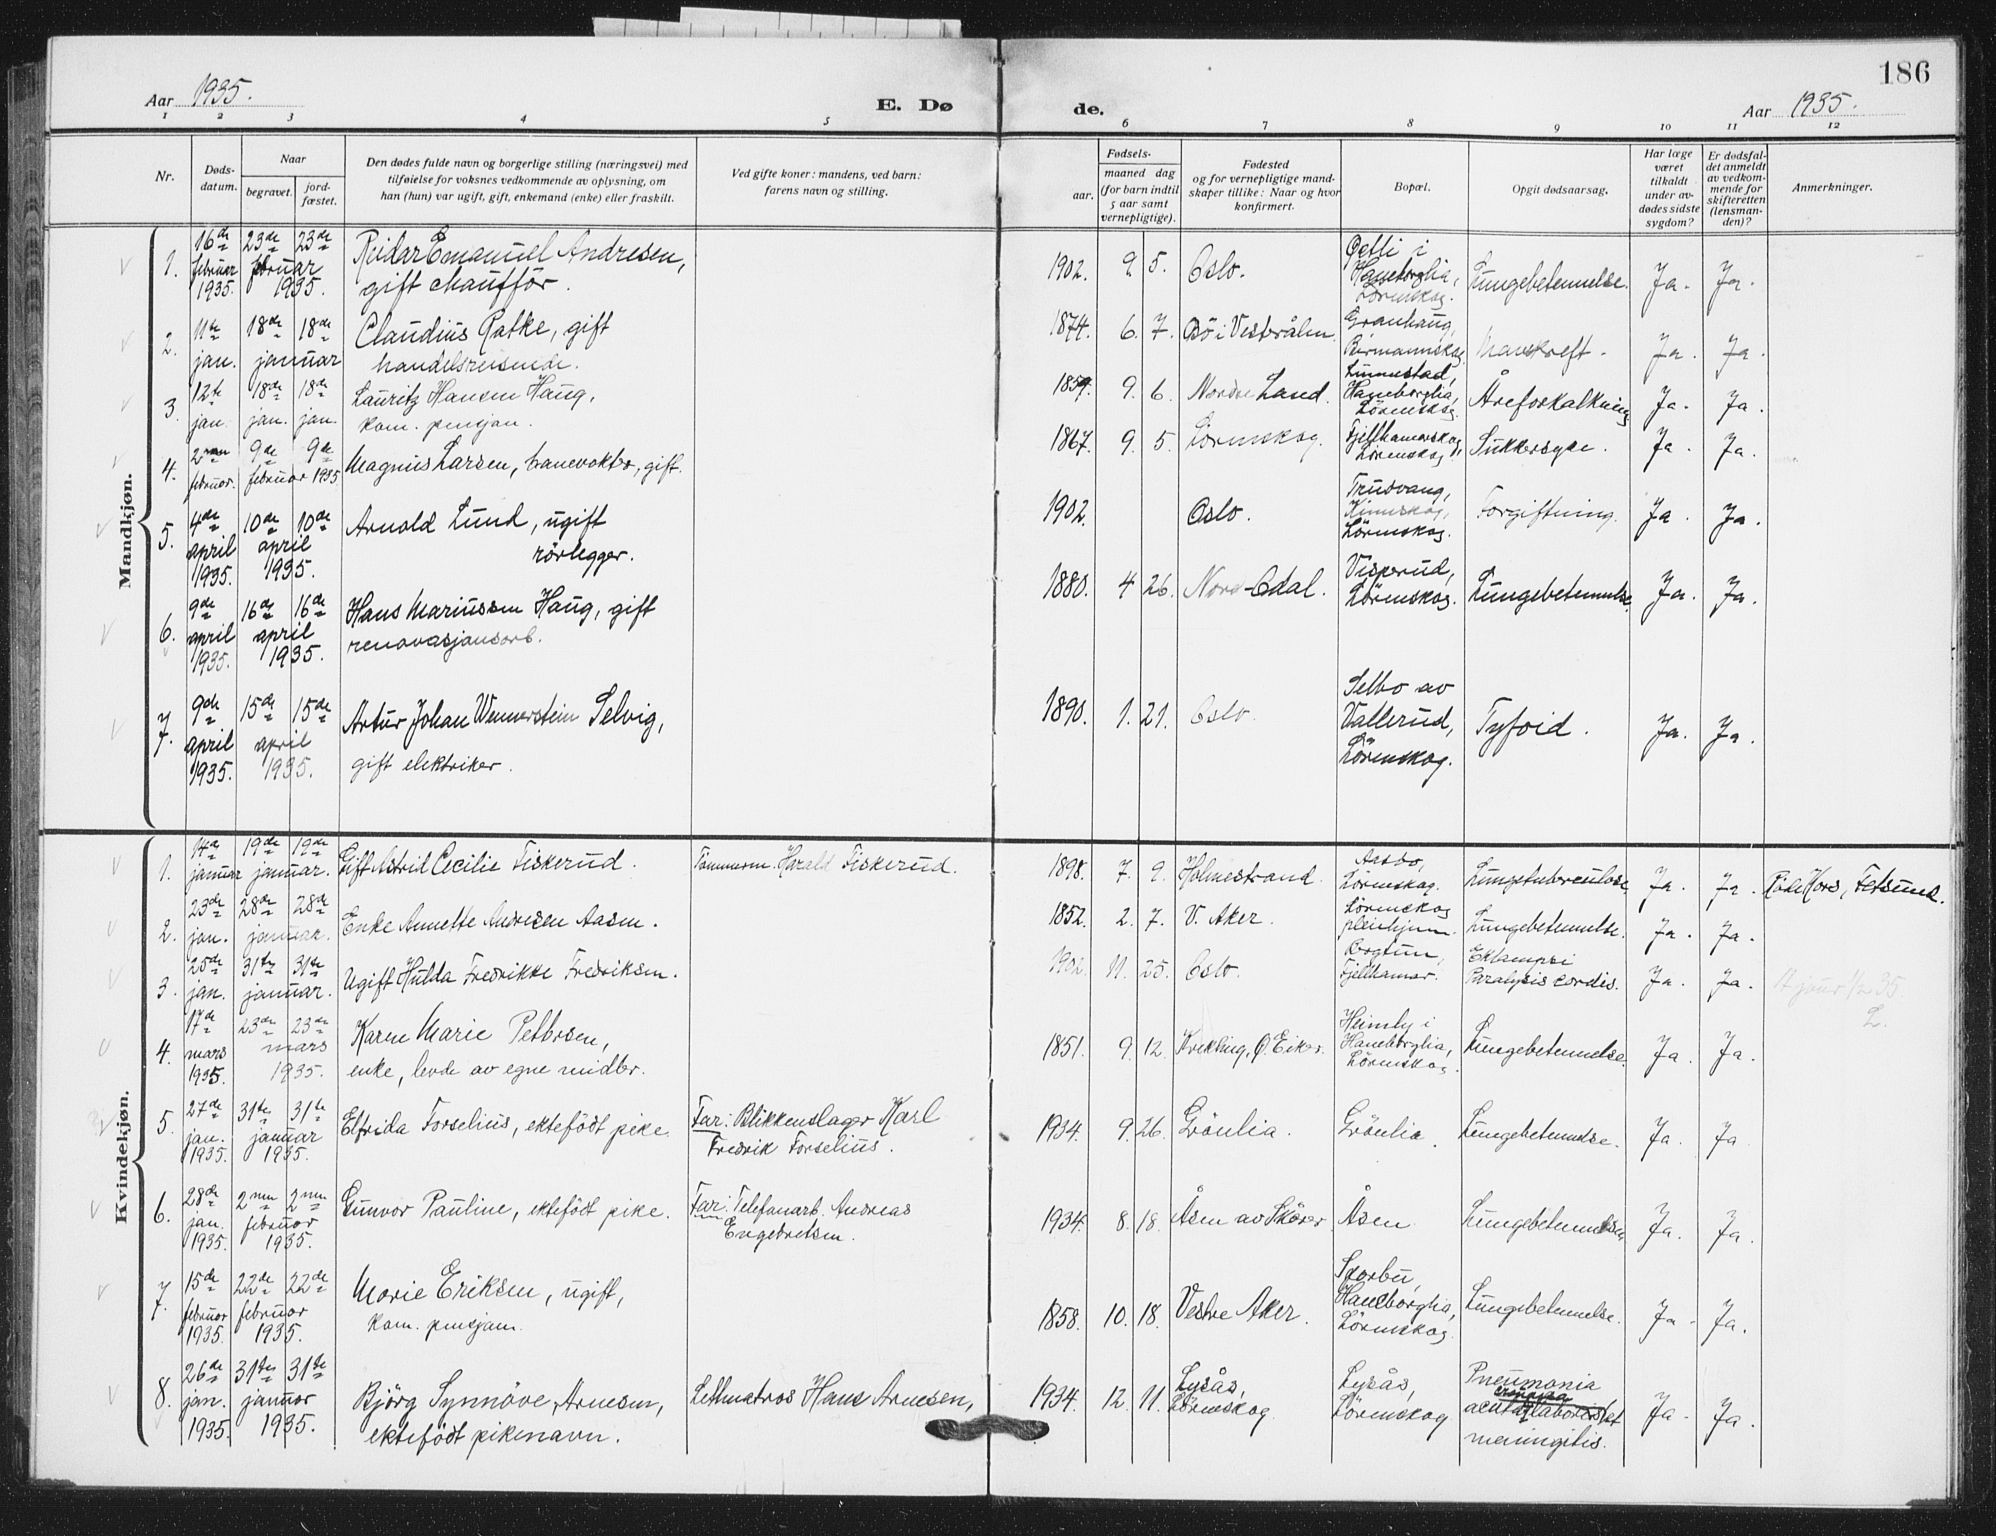 186
Aar 1935.
E. Dø
de.
Aar 1935.
1 2 3 4 5 6 7 8 9 10 11 12
Nr.
Døds-
datum.
Naar
begravet.
jord-
fæstet.
Den dødes fulde navn og borgerlige stilling (næringsvei) med
tilføielse for voksnes vedkommende av oplysning, om
han (hun) var ugift, gift, enkemand (enke) eller fraskilt.
Ved gifte koner: mandens, ved barn:
farens navn og stilling.
Fødsels-
aar. maaned dag
(for barn indtil
5 aar samt
vernepligtige).
Fødested
og for vernepligtige mand-
skaper tillike: Naar og hvor
konfirmert.
Bopæl.
Opgit dødsaarsag.
Har læge
været
tilkaldt
under av-
dødes sidste
sygdom?
Er dødsfal-
det anmeldt
av vedkom-
mende for
skifteretten
(lensman-
den)?
Anmerkninger.
Mandkjøn.
1. 16de februar 1935. 23de 23de februar 1935.
Reidar Emanuel Andresen,
gift chauffør.
1902. 9. 5. Oslo.
i
Haneborglia,
Lörenskog.
Lungebetennelse. Ja. Ja.
2. 11te jan. 18de 18de januar
Claudius Ratke, gift
handelsreisende.
1874. 6. 7. Bö i Vesterålen.
Granhaug,
Mavekreft. Ja. Ja.
3. 12te jan. 18de jan. 18de jan.
Lauritz Hansen Haug,
kom. pensjon.
1859. 9. 6. Nordre Land.
Linnestad,
Haneborglia,
Lörenskog.
Åreforkalkning Ja. Ja.
4. 2nen februar. 9de 9de februar 1935
Magnus Larsen, banevokter, gift.
1867. 9. 5. Lörenskog.
Fjellhamarskog,
Lörenskog.
Sukkersyke. Ja. Ja.
5. 4de april 1935. 10de 10de april 1935.
Arnold Lund, ugift
rörlegger.
1902. Oslo.
Trudvang,
Lörenskog.
Forgiftning. Ja. Ja.
6. 9de april 1935. 16de 16de april 1935.
Hans Mariussen Haug, gift
renovasjonsarb.
1880. 4 26. Nord-Odal.
Visperud,
Lörenskog.
Lungebetennelse. Ja. Ja.
7. 9de april 1935. 15de 15de april 1935.
Artur Johan Wennerstein Selvig,
gift elektriker.
1890. 1. 21. Oslo.
Selbo av
Vallerud,
Lörenskog.
Tyfoid. Ja. Ja.
Kvindekjøn.
1. 14de januar 19de 19de januar.
Gift Astrid Cecilie Fiskerud.
Tömmerm. Harald Fiskerud.
1898. 7. 9. Holmestrand.
Aasbo,
Lörenskog.
Lungetuberculose Ja. Ja. Röde Kors, Fetsund.
2. 23de jan. 28de 28de januar.
Enke Annette Andresen Aasen.
1852. 2. 7. V. Aker.
Lörenskog
pleiehjem.
Lungebetennelse. Ja. Ja.
3. 25de jan. 31te 31te januar.
Ugift Hulda Fredrikke Fredriksen.
1902. 11. 25. Oslo.
Bogtun,
Fjellhamar.
Eklampsi
Paralysis cordis. Ja. Ja.
4. 17de mars 1935. 23de 23de mars 1935.
Karen Marie Pettersen,
enke, levde av egne midler.
1851. 9. 12. Krekling, Ø. Eiker.
Heimly i
Haneborglia,
Lörenskog.
Lungebetennelse. Ja. Ja.
5. 27de jan. 1935. 31te 31te januar 1935.
Elfrida Forselius, ektefödt pike.
Far: Blikkenslager Karl
Fredrik Forselius.
1934. 9. 26. Grönlia. Grönlia. Lungebetennelse. Ja. Ja
6. 28de jan. 1935. 2nen 2nen februar 1935.
Gunvor Pauline, ektefödt pike.
Far: Telefonarb. Andreas
Engebretsen.
1934. 8. 18. Åsen av Skårer. Åsen. Lungebetennelse Ja. Ja.
7. 15de februar 1935. 22de 22de februar 1935.
Marie Eriksen, ugift,
kom. pensjon.
1858. 10. 18. Vestre Aker.
Skorbu,
Haneborglia,
Lörenskog.
Lungebetennelse. Ja. Ja.
8. 26de jan. 1935. 31te 31te januar 1935.
Björg Synnöve Arnesen,
ektefödt pikenavn.
Lettmatros Hans Arnesen,
1934. 12. 11.
Lysås,
Lörenskog
Lysås,
Lörenskog
Pneumonia
acuta et
meningitis.
Ja. Ja.